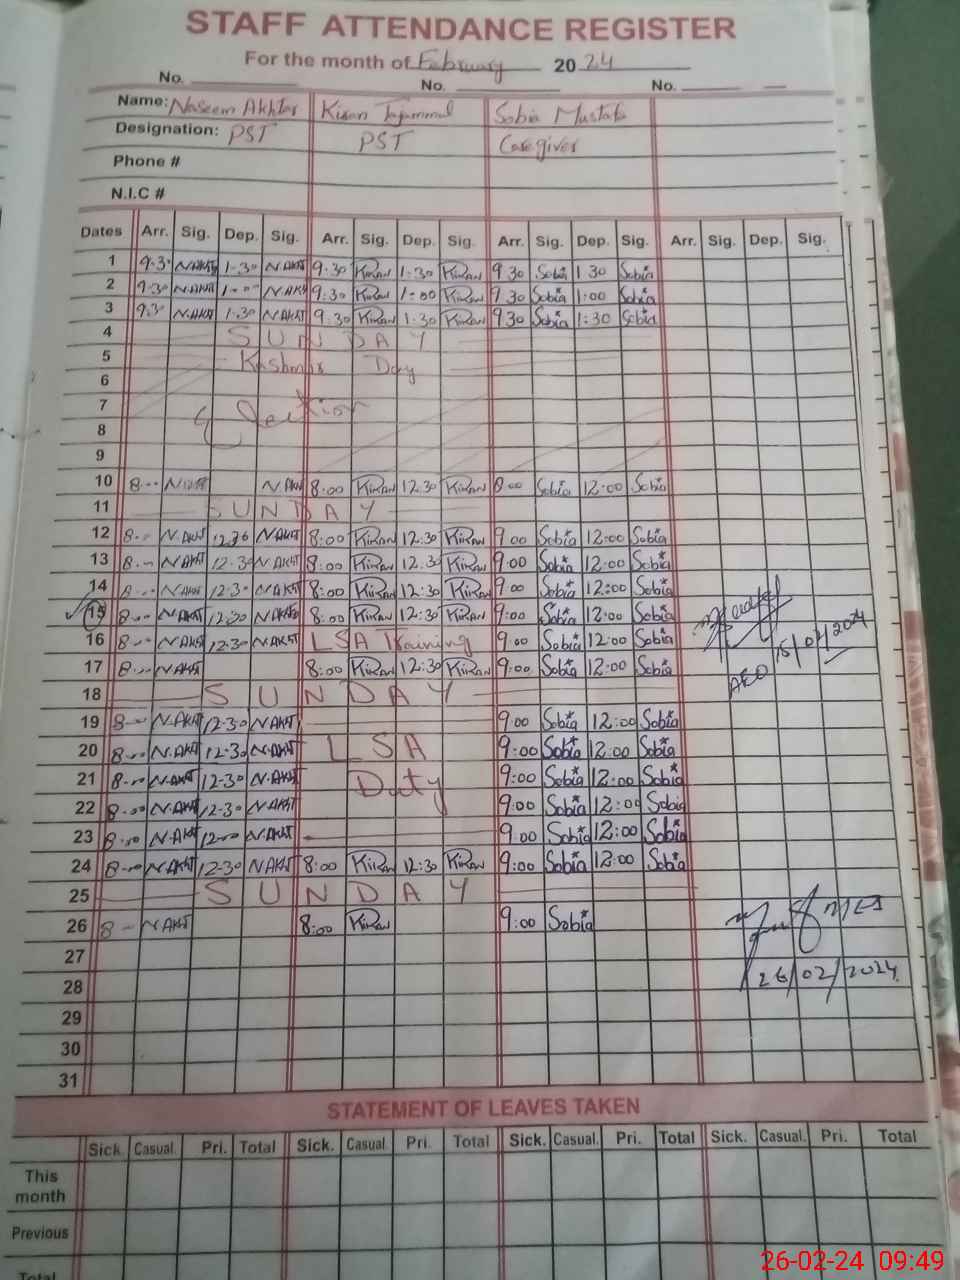 STAFF ATTENDANCE REGISTER
For the month of February 2024
No. No. No.
Name: Naseem Akhtar Kiran Tajammal Sobia Mustafa
Designation: PST PST Caregiver
Phone #
N.I.C #
Dates Arr. Sig. Dep. Sig. Arr. Sig. Dep. Sig. Arr. Sig. Dep. Sig. Arr. Sig. Dep. Sig.
1 9.30 N.AKHT 1.30 N.AKHT 9:30 Kiran 1:30 Kiran 9 30 Sobia 1 30 Sobia
2 9.30 N.AKHT 1-00 N.AKHT 9:30 Kiran 1:00 Kiran 9 30 Sobia 1:00 Sobia
3 9.30 N.AKHT 1.30 N.AKHT 9:30 Kiran 1:30 Kiran 9 30 Sobia 1:30 Sobia
4 SUNDAY
5 Kashmir Day
6
7 Election
8
9
10 8-00 N.AKHT N.AKHT 8:00 Kiran 12:30 Kiran 8:00 Sobia 12:00 Sobia
11 SUNDAY
12 8-00 N.AKHT 12.30 N.AKHT 8:00 Kiran 12:30 Kiran 9:00 Sobia 12:00 Sobia
13 8-00 N.AKHT 12.30 N.AKHT 8:00 Kiran 12:30 Kiran 9:00 Sobia 12:00 Sobia
14 8-00 N.AKHT 12.30 N.AKHT 8:00 Kiran 12:30 Kiran 9:00 Sobia 12:00 Sobia
15 8-00 N.AKHT 12.30 N.AKHT 8:00 Kiran 12:30 Kiran 9:00 Sobia 12:00 Sobia
16 8-00 N.AKHT 12.30 N.AKHT LSA Training 9:00 Sobia 12:00 Sobia 15/02/2024
17 8-00 N.AKHT 8:00 Kiran 12:30 Kiran 9:00 Sobia 12:00 Sobia AEO
18 SUNDAY
19 8-00 N.AKHT 12-30 N.AKHT 9:00 Sobia 12:00 Sobia
20 8-00 N.AKHT 12-30 N.AKHT LSA 9:00 Sobia 12:00 Sobia
21 8-00 N.AKHT 12-30 N.AKHT Duty 9:00 Sobia 12:00 Sobia
22 8-00 N.AKHT 12-30 N.AKHT 9:00 Sobia 12:00 Sobia
23 8-00 N.AKHT 12-00 N.AKHT 9:00 Sobia 12:00 Sobia
24 8-00 N.AKHT 12-30 N.AKHT 8:00 Kiran 12:30 Kiran 9:00 Sobia 12:00 Sobia
25 SUNDAY
26 8- N.AKHT 8:00 Kiran 9:00 Sobia
27
28 26/02/2024
29
30
31
STATEMENT OF LEAVES TAKEN
Sick. Casual. Pri. Total Sick. Casual. Pri. Total Sick. Casual. Pri. Total Sick. Casual. Pri. Total
This
month
Previous
Total
26-02-24 09:49